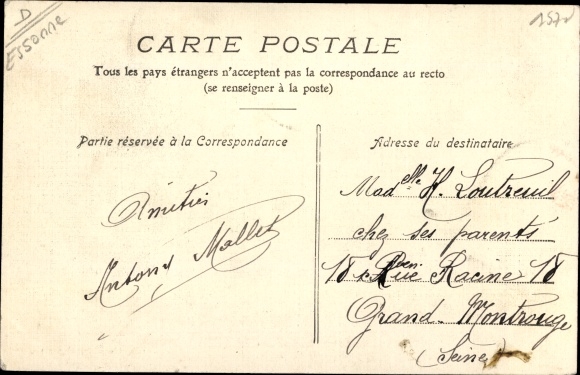 D
Essonne
CARTE POSTALE
Tous les pays étrangers n'acceptent pas la correspondance au recto
(se renseigner à la poste)
Partie réservée à la Correspondance
Amitiés
Antony Mallet
Adresse du destinataire
Madelle H. Loutreuil
chez ses parents
18 Rue Racine 18
Grand-Montrouge
(Seine)